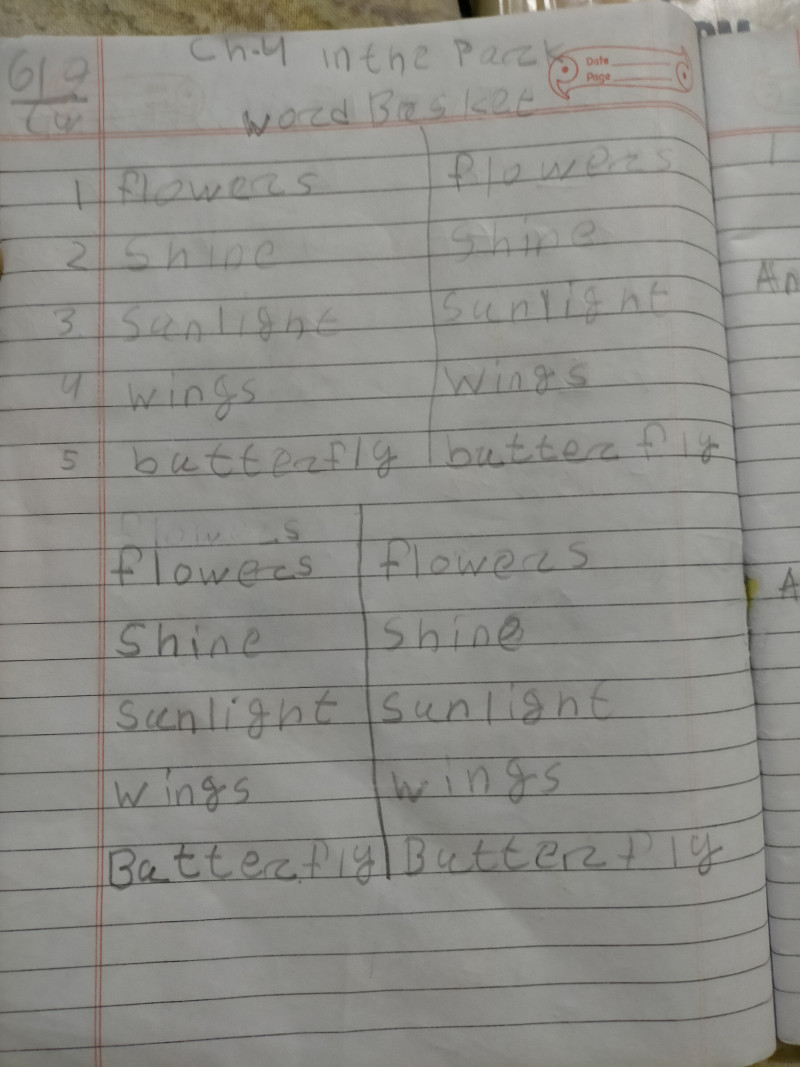 Ch-4 in the Park
Date
Page
6/9
CW
Word Basket
1 flowers flowers
2 Shine Shine
3. Sunlight Sunlight
4 Wings Wings
5 butterfly butterfly
flowers flowers
Shine Shine
Sunlight Sunlight
Wings Wings
Butterfly Butterfly
1
An
A